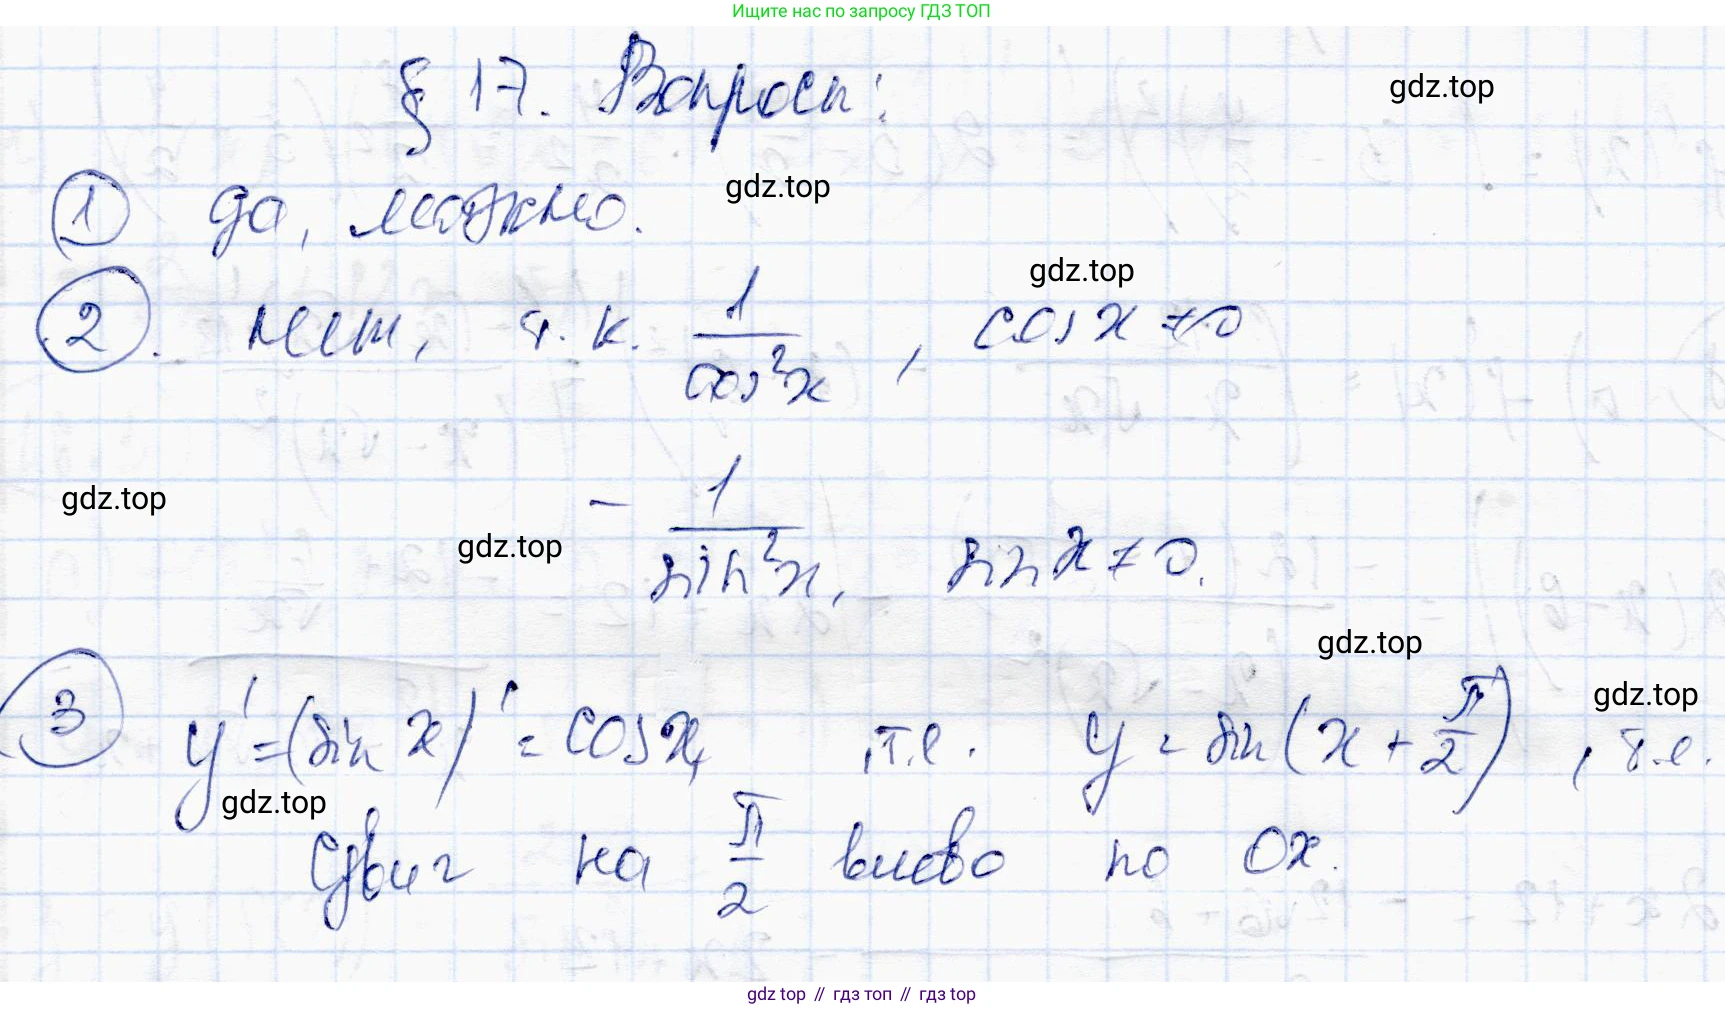 Ищите нас по запросу ГДЗ ТОП
§ 17. Вопросы:
gdz.top
① да, можно.
gdz.top
② . нет, т.к. 1/cos²x , cos x ≠ 0
gdz.top
gdz.top
- 1/sin²x, sin x ≠ 0.
gdz.top
gdz.top
③ y' = (sin x)' = cos x, т.е. y = sin(x + π/2) , т.е.
gdz.top
gdz.top
сдвиг на π/2 влево по Ox.
gdz top // гдз топ // гдз top